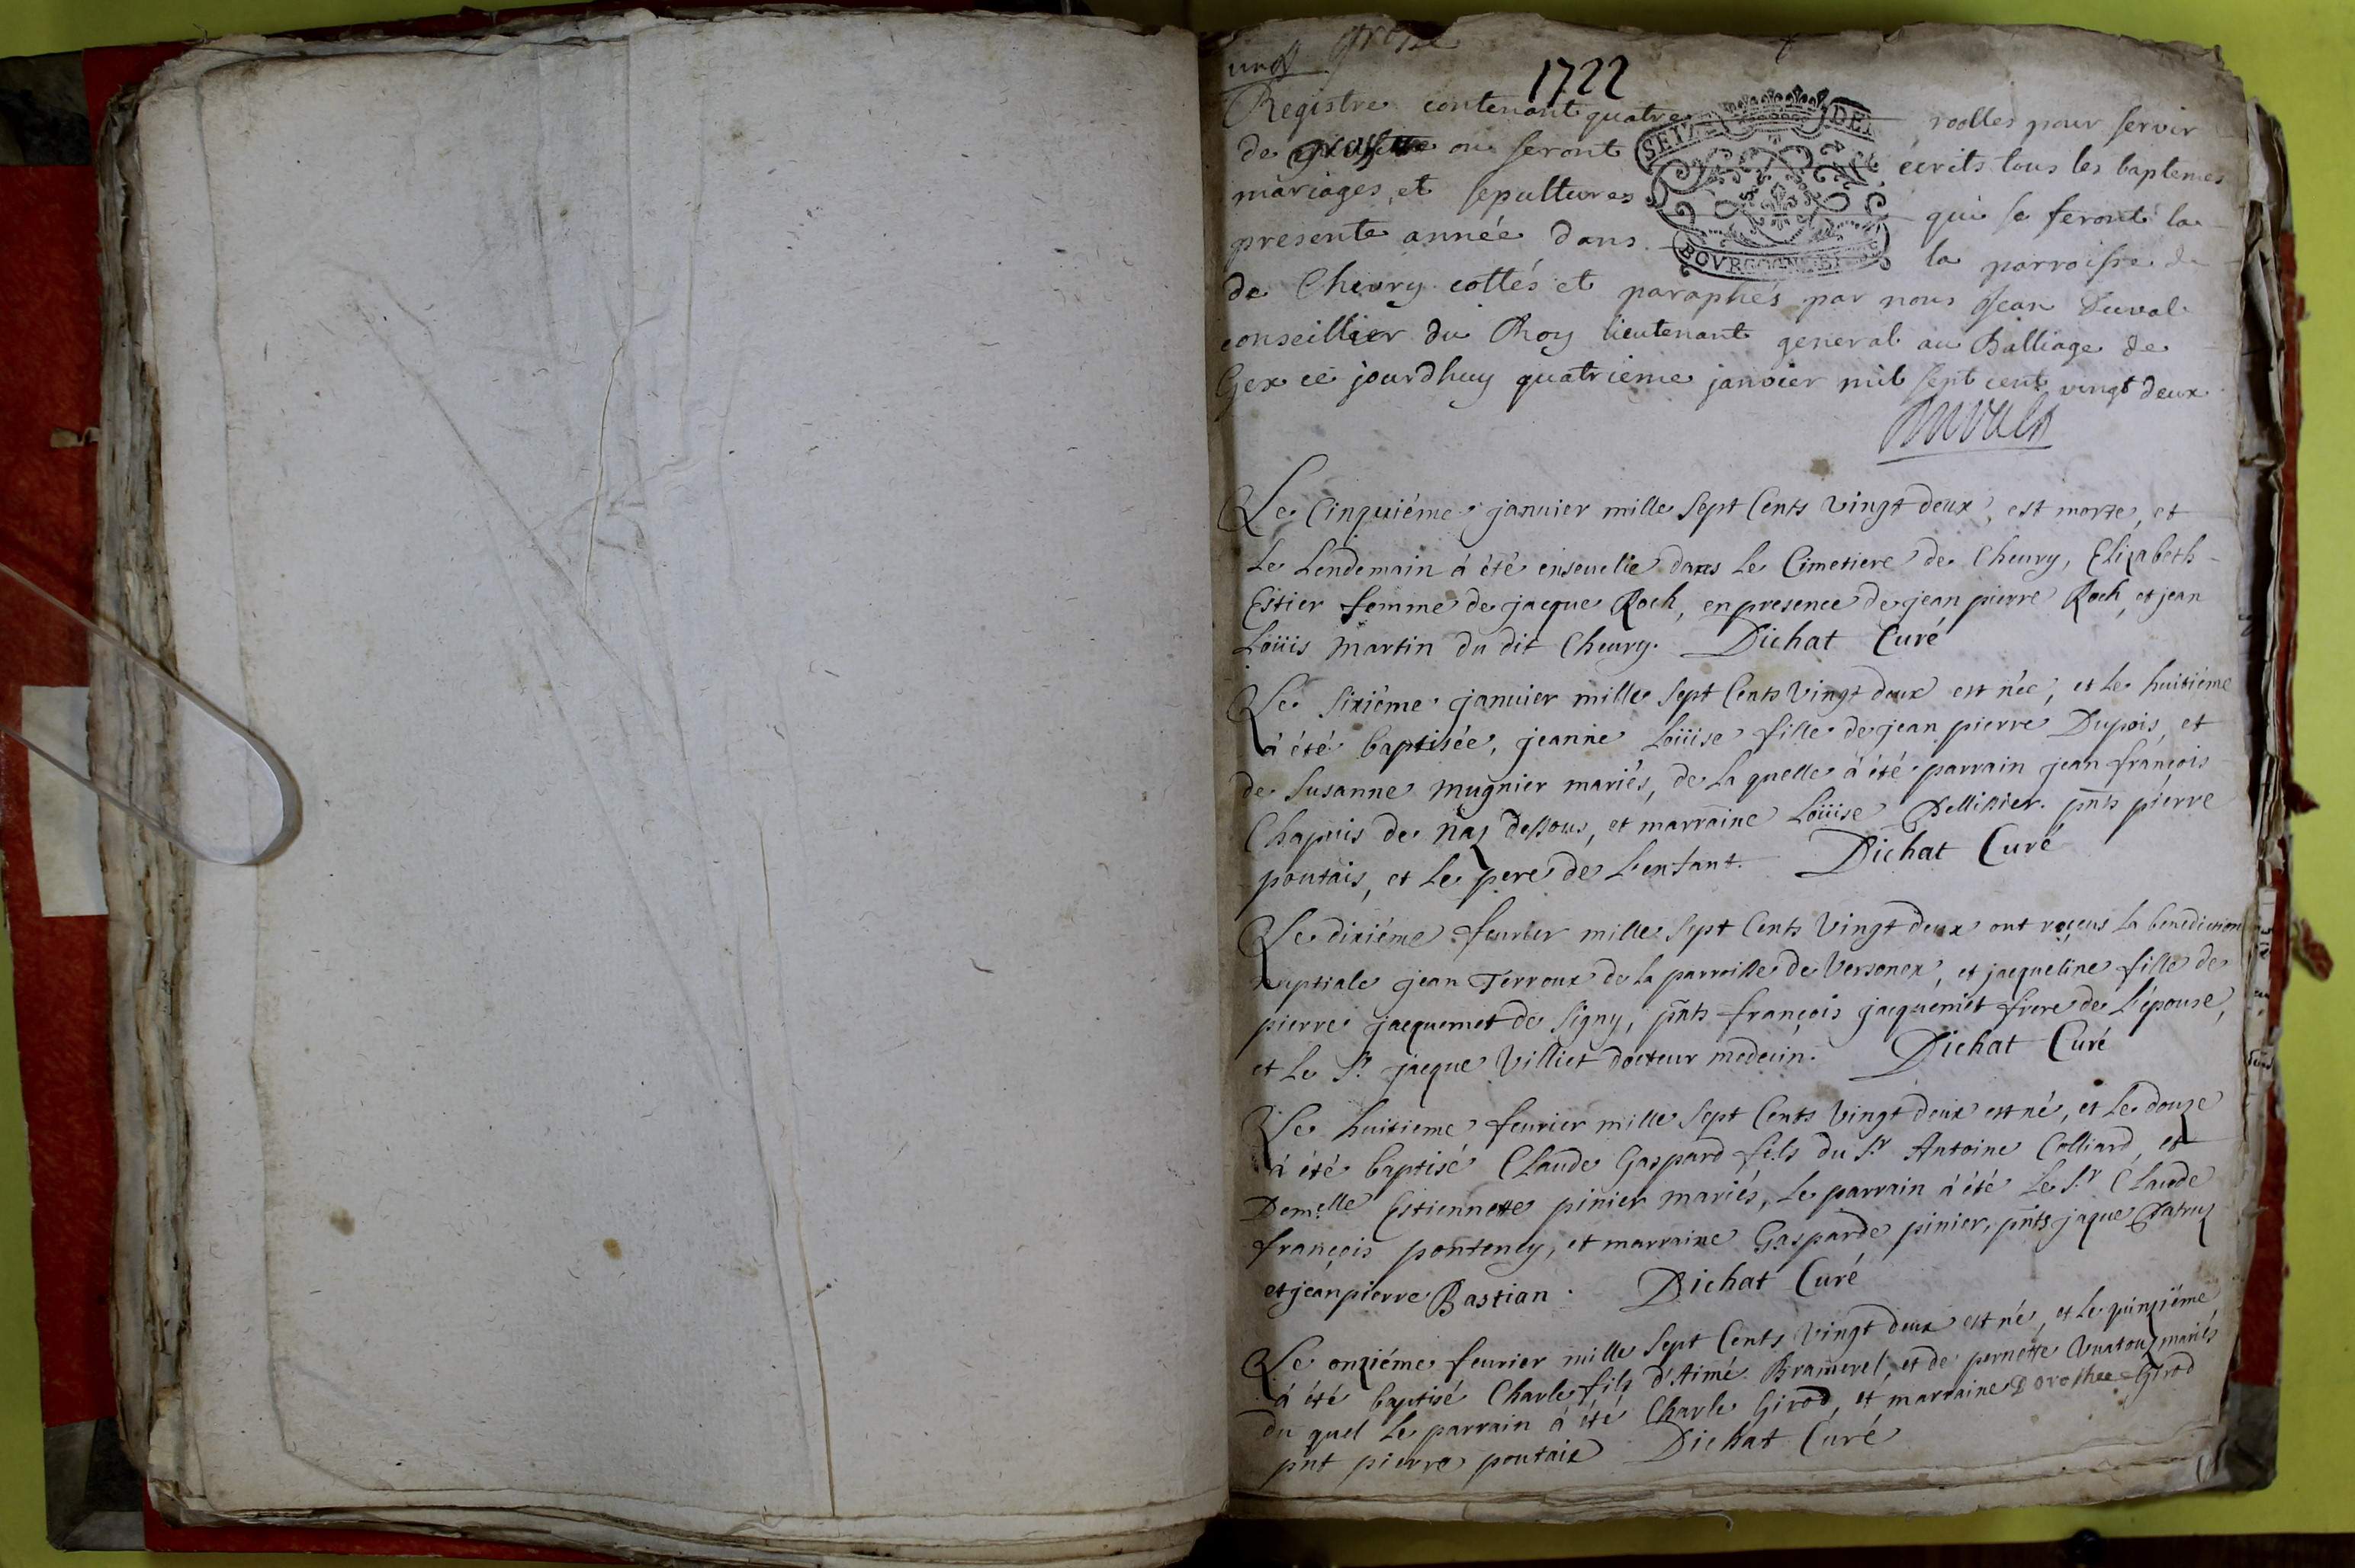 grosse
1722
Registre contenant quatre roolles pour servir
de ou seront écrits tous les baptemes
mariages, et sepultures qui se feront la
presente année dans la parroisse de
de Chevry cottés et paraphés par nous Jean Duval
conseillier du Roy lieutenant general au Balliage de
Gex ce jourdhuy quatrieme janvier mil sept cent vingt deux
Duval
SEIZE DE
BOVRGOGNE
Le Cinquiéme janvier mille Sept Cents vingt deux, est morte, et
Le Lendemain à été ensevelie dans Le Cimetiere de Cheury, Elizabeth
Estier femme de jacque Roch, en presence de jean pierre Roch, et jean
Loüis Martin du dit Cheury. Dichat Curé
Le Sixiéme januier mille Sept Cents Vingt deux est née, et Le huitiéme
à été baptisée, jeanne Loüise fille de jean pierre Dupois, et
de Susanne Mugnier mariés, de La quelle à été parrain jean françois
Chapuis de Naz dessous, et marraine Loüise Pellissier. pñts pierre
poutais, et Le pere de L'enfant. Dichat Curé
Le dixiéme feurier mille Sept Cents Vingt deux ont reçeus La benediction
nuptiale jean Terroux de La parroisse de Versonex, et jacqueline fille de
pierre jacquemet de Signy, pñts françois jacquemet frere de L'épouse,
et Le Sr. jacque Villiet docteur medecin. Dichat Curé
Le huitieme feurier mille Sept Cents Vingt deux est né, et Le douze
à été baptisé Claude Gaspard fils du Sr Antoine Colliard, et
Demelle Estiennette pinier mariés, Le parrain à été Le Sr Claude
françois ponteney, et marraine Gasparde pinier, pñts jaque Patruz
et jean pierre Bastian. Dichat Curé
Le onziéme feurier mille Sept Cents Vingt deux est né, et Le quinziéme
à été baptisé Charle fils d'Aimé Bramerel, et de pernette Vuatouz mariés
du quel Le parrain à été Charle Girod, et marraine Dorothée Girod
pnt pierre poutais Dichat Curé